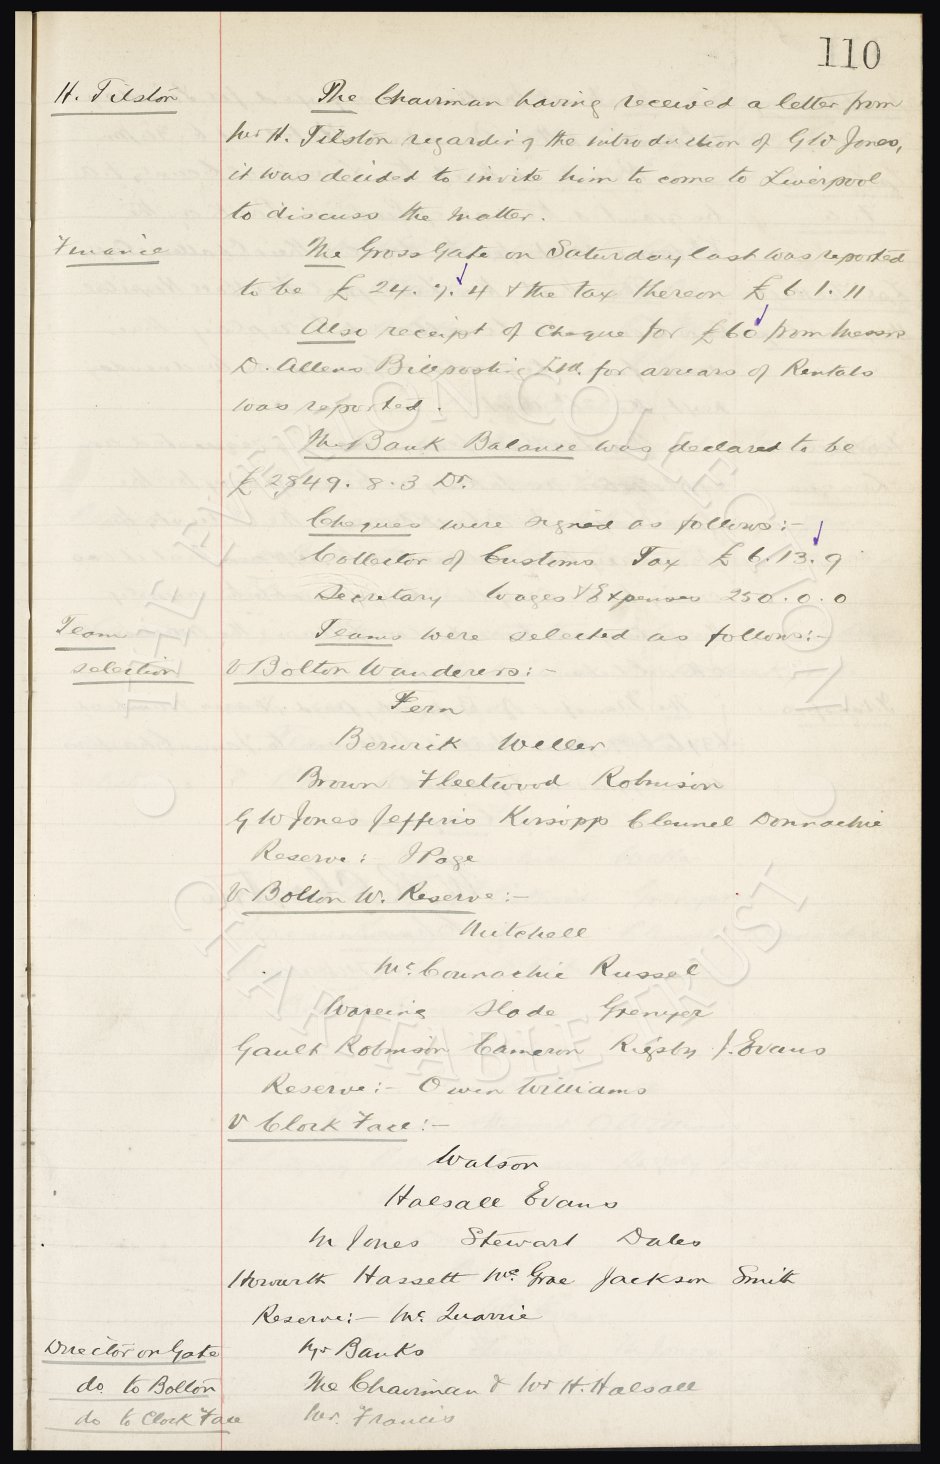 110
H. Tilston
The Chairman having received a letter from
Mr H. Tilston regarding the introduction of G W Jones,
it was decided to invite him to come to Liverpool
to discuss the matter.
Finance
The Gross Gate on Saturday last was reported
to be £ 24. 7. 4 & the tax thereon £ 6. 1. 11
Also receipt of cheque for £60 from Messrs
D. Allens Billposting Ltd. for arrears of Rentals
was reported.
The Bank Balance was declared to be
£ 2849. 8. 3 Dr.
Cheques were signed as follows:-
Collector of Customs Tax £ 6. 13. 9
Secretary Wages & Expenses 250. 0. 0
Team
selection
Teams were selected as follows:-
V Bolton Wanderers:-
Fern
Berwick Weller
Brown Fleetwood Robinson
G W Jones Jefferis Kirsopp Clennel Donnachie
Reserve: J Page
V Bolton W. Reserve:-
Mitchell
McConnachie Russel
Wareing Slade Grenyer
Gault Robinson Cameron Rigsby J. Evans
Reserve:- Owen Williams
V Clock Face:-
Watson
Halsall Evans
M Jones Stewart Dales
Howarth Hassett Mc Grae Jackson Smith
Reserve:- Mc Quarrie
Director on Gate Mr Banks
do. to Bolton The Chairman & Mr H. Halsall
do to Clock Face Mr. Francis